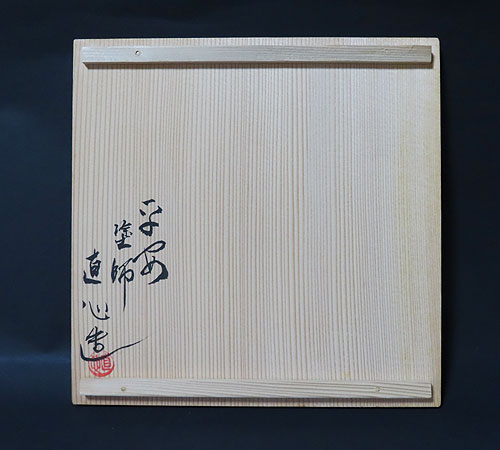 平安
塗師
直心造